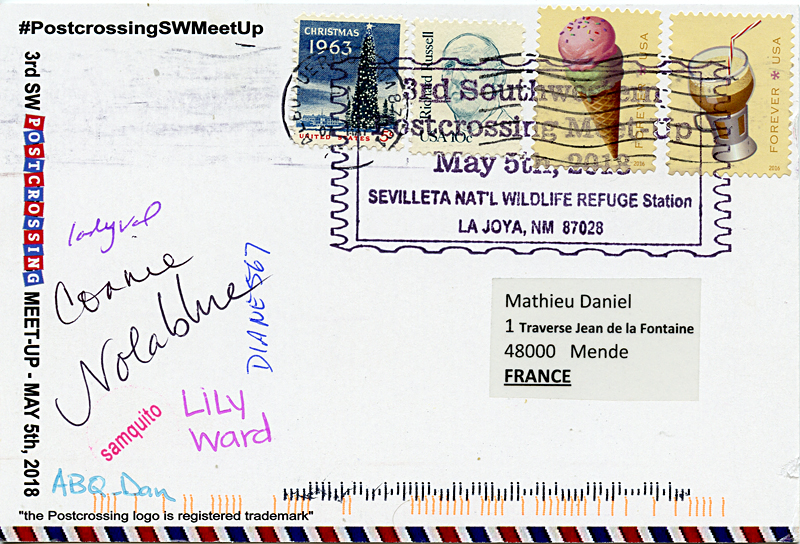 #PostcrossingSWMeetUp
CHRISTMAS
1963
UNITED STATES
Richard Russell
USA 10c
USA
2016
FOREVER * USA
2016
3rd Southwestern
Postcrossing Meet-Up
May 5th, 2018
SEVILLETA NAT'L WILDLIFE REFUGE Station
LA JOYA, NM 87028
3rd SW POSTCROSSING MEET-UP - MAY 5th, 2018
ladyval
Connie
Nolablue
DIANE567
Mathieu Daniel
1 Traverse Jean de la Fontaine
48000 Mende
FRANCE
samquito
LiLy
Ward
ABQ-Dan
"the Postcrossing logo is registered trademark"